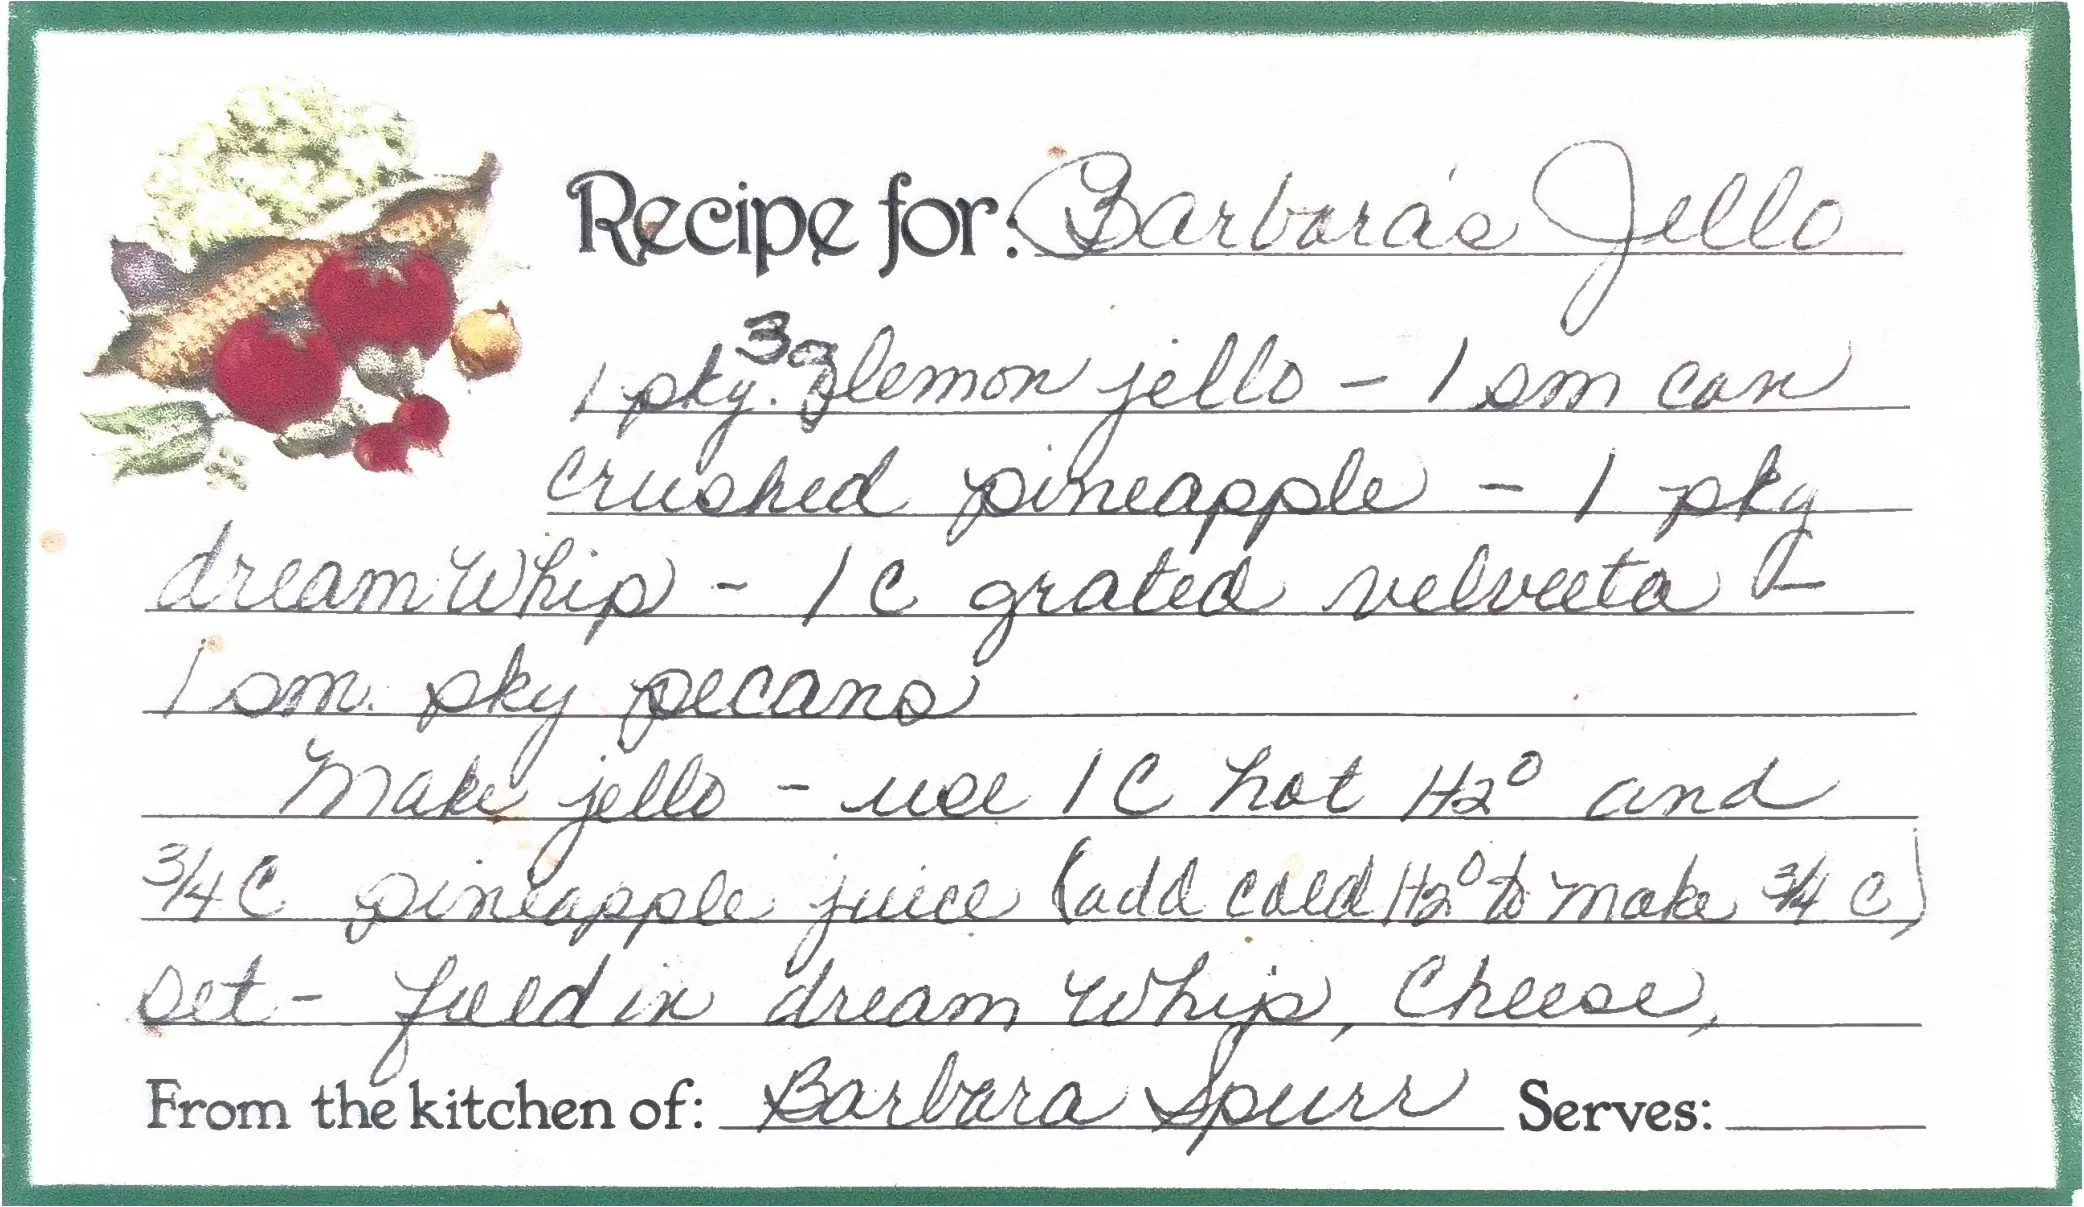 Recipe for: Barbara's Jello
1 pkg. 3 oz lemon jello - 1 sm can
crushed pineapple - 1 pkg
dream Whip - 1 C grated velveeta -
1 sm. pkg pecans
Make jello - use 1 C hot H2O and
3/4 C pineapple juice (add cold H2O to make 3/4 C)
Set - fold in dream Whip, Cheese,
From the kitchen of: Barbara Spurr Serves: